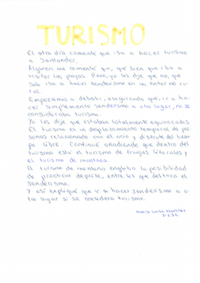 TURISMO
El otro día comenté que iba a hacer turismo a Santander.
Alguien me comentó que, que bien que iba a visitar las playas. Pero yo les dije que no, que solo iba a hacer senderismo en un entorno rural.
Empezamos a debatir, asegurando que ir a hacer simplemente senderismo a otro lugar, no se consideraba turismo.
Yo les dije que estaban totalmente equivocados.
El turismo es un desplazamiento temporal de personas relacionado con el ocio y disfrute del tiempo libre. Continué añadiendo que dentro del turismo está el turismo de
El turismo de montaña engloba la posibilidad de practicar deporte, entre los que destaca el senderismo.
Y así expliqué que ir a hacer senderismo a otro lugar si se considera turismo.